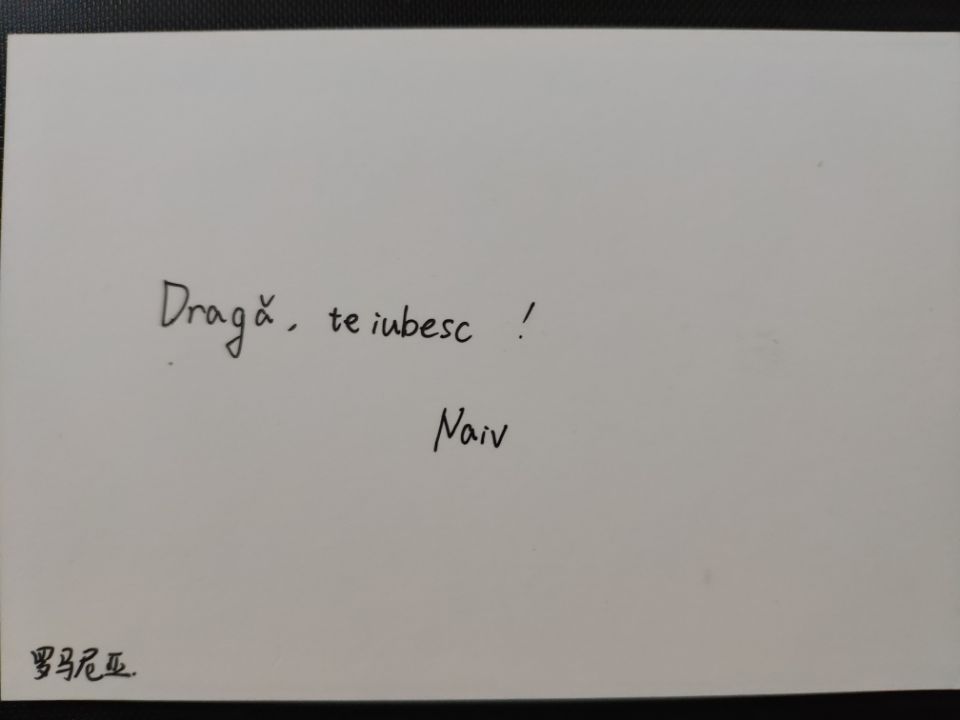 Dragă, te iubesc !
Naiv
罗马尼亚.